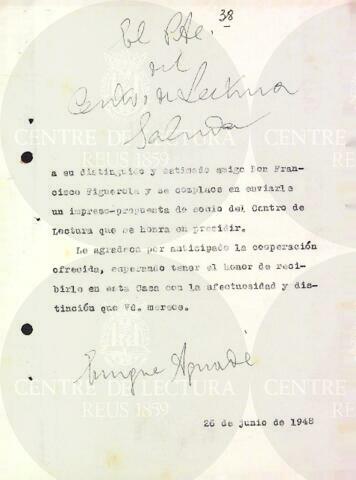 38
El Pte.
del
Centro de Lectura
Saluda
a su distinguido y estimado amigo Don Fran-
cisco Figuerola y se complace en enviarle
un impreso-propuesta de socio del Centro de
Lectura que se honra en presidir.
Le agradece por anticipado la cooperación
ofrecida, esperando tener el honor de reci-
birle en esta Casa con la afectuosidad y dis-
tinción que Vd. merece.
Enrique Aguadé
26 de junio de 1948
CENTRE DE LECTURA
REUS 1859
CENTRE DE LECTURA
REUS 1859